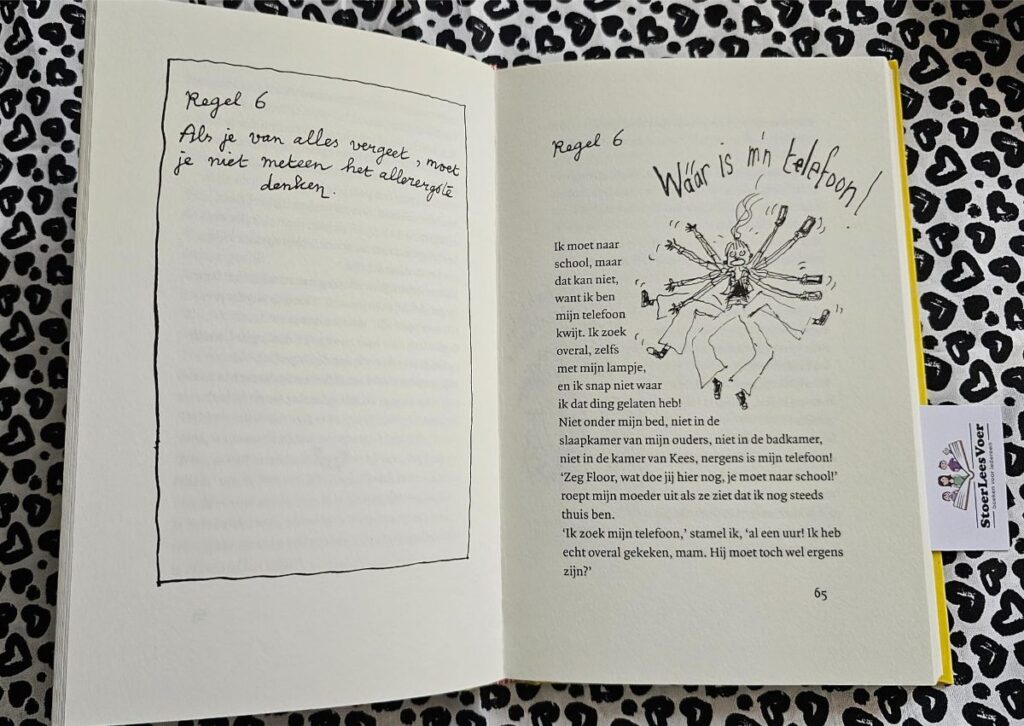 Regel 6
Als je van alles vergeet, moet
je niet meteen het allerergste
denken.
Regel 6
Wáár is m'n telefoon!
Ik moet naar
school, maar
dat kan niet,
want ik ben
mijn telefoon
kwijt. Ik zoek
overal, zelfs
met mijn lampje,
en ik snap niet waar
ik dat ding gelaten heb!
Niet onder mijn bed, niet in de
slaapkamer van mijn ouders, niet in de badkamer,
niet in de kamer van Kees, nergens is mijn telefoon!
‘Zeg Floor, wat doe jij hier nog, je moet naar school!’
roept mijn moeder uit als ze ziet dat ik nog steeds
thuis ben.
‘Ik zoek mijn telefoon,’ stamel ik, ‘al een uur! Ik heb
echt overal gekeken, mam. Hij moet toch wel ergens
zijn?’
65
StoerLeesVoer
boeken voor iedereen